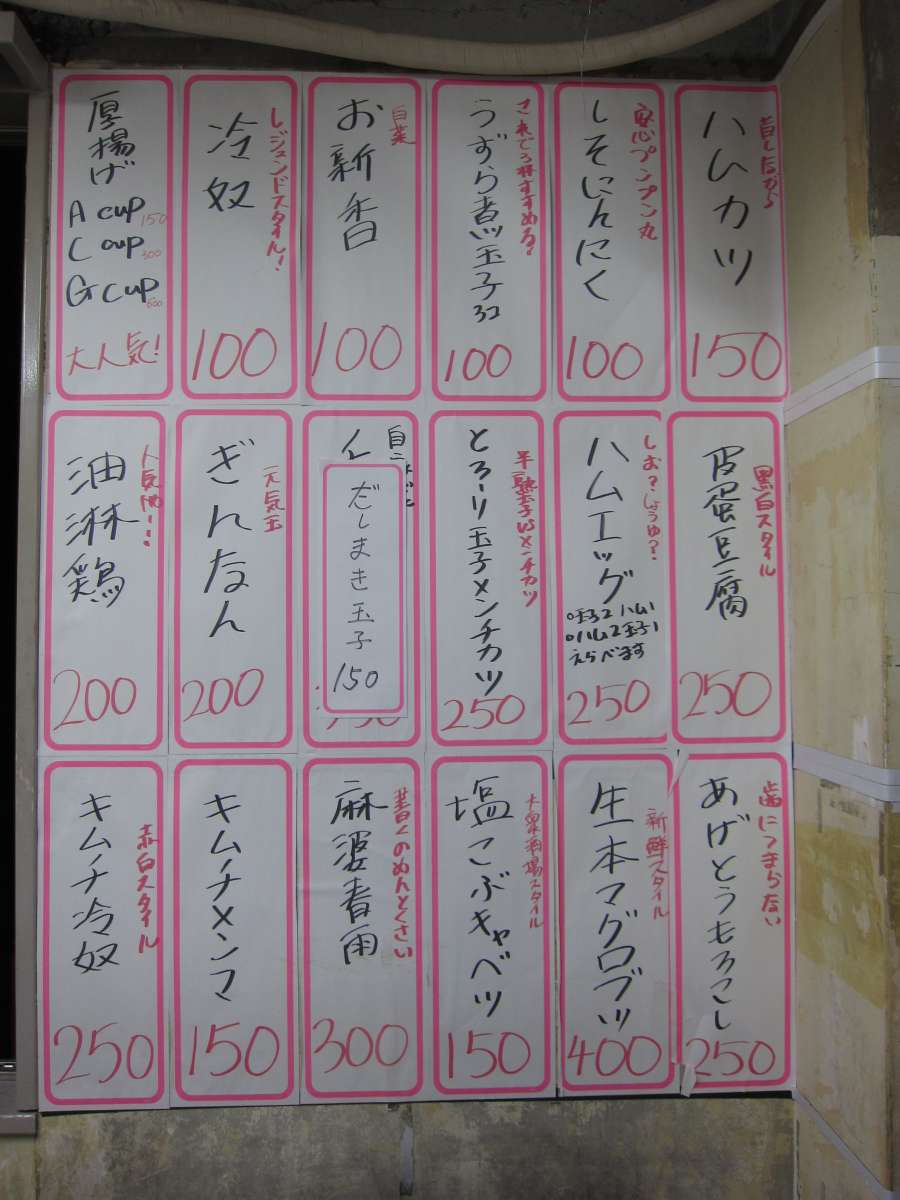 昔しながら
ハムカツ
150
安心プンプン丸
しそにんにく
100
これで3杯すすめる?
うずら煮玉子3コ
100
白菜
お新香
100
レジェンドスタイル!
冷奴
100
厚揚げ
A cup 150
C cup 300
G cup 600
大人気!
黒白スタイル
皮蛋豆腐
250
しお?しょうゆ?
ハムエッグ
○玉子2ハム1
○ハム2玉子1
えらべます
250
半熟玉子VSメンチカツ
とろ〜り玉子メンチカツ
250
だしまき玉子
150
元気玉
ぎんなん
200
油淋鶏
200
歯につまらない
あげとうもろこし
250
新鮮スタイル
生本マグロブツ
400
大衆酒場スタイル
塩こぶキャベツ
150
書くのめんどくさい
麻婆春雨
300
キムチメンマ
150
赤白スタイル
キムチ冷奴
250